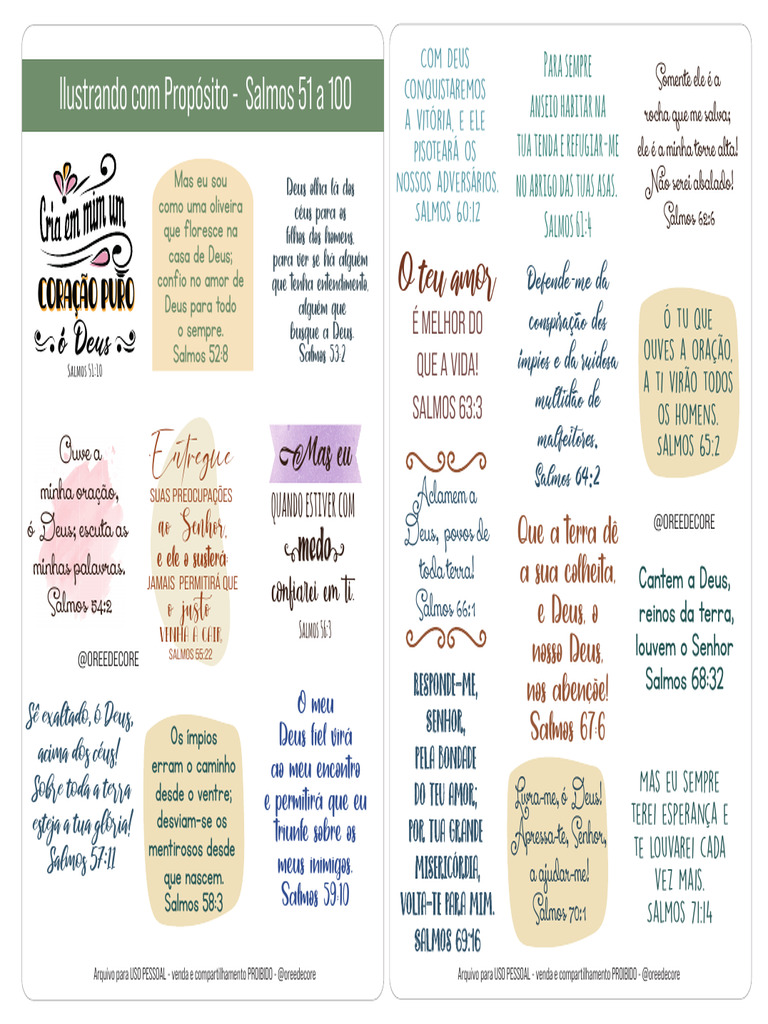 Ilustrando com Propósito - Salmos 51 a 100
Cria em mim um
CORAÇÃO PURO
ó Deus
Salmos 51:10
Mas eu sou
como uma oliveira
que floresce na
casa de Deus;
confio no amor de
Deus para todo
o sempre.
Salmos 52:8
Deus olha lá dos
céus para os
filhos dos homens,
para ver se há alguém
que tenha entendimento,
alguém que
busque a Deus.
Salmos 53:2
Ouve a
minha oração,
ó Deus; escuta as
minhas palavras.
Salmos 54:2
Entregue
SUAS PREOCUPAÇÕES
ao Senhor,
e ele o susterá;
JAMAIS PERMITIRÁ QUE
o justo
VENHA A CAIR.
SALMOS 55:22
Mas eu
QUANDO ESTIVER COM
medo
confiarei em ti.
Salmos 56:3
@OREEDECORE
Sê exaltado, ó Deus,
acima dos céus!
Sobre toda a terra
esteja a tua glória!
Salmos 57:11
Os ímpios
erram o caminho
desde o ventre;
desviam-se os
mentirosos desde
que nascem.
Salmos 58:3
O meu
Deus fiel virá
ao meu encontro
e permitirá que eu
triunfe sobre os
meus inimigos.
Salmos 59:10
Arquivo para USO PESSOAL - venda e compartilhamento PROIBIDO - @oreedecore
COM DEUS
CONQUISTAREMOS
A VITÓRIA, E ELE
PISOTEARÁ OS
NOSSOS ADVERSÁRIOS.
SALMOS 60:12
Para sempre
anseio habitar na
tua tenda e refugiar-me
no abrigo das tuas asas.
Salmos 61:4
Somente ele é a
rocha que me salva;
ele é a minha torre alta!
Não serei abalado!
Salmos 62:6
O teu amor
É MELHOR DO
QUE A VIDA!
SALMOS 63:3
Defende-me da
conspiração dos
ímpios e da ruidosa
multidão de
malfeitores.
Salmos 64:2
Ó TU QUE
OUVES A ORAÇÃO,
A TI VIRÃO TODOS
OS HOMENS.
SALMOS 65:2
Aclamem a
Deus, povos de
toda terra!
Salmos 66:1
Que a terra dê
a sua colheita,
e Deus, o
nosso Deus,
nos abençõe!
Salmos 67:6
@OREEDECORE
Cantem a Deus,
reinos da terra,
louvem o Senhor
Salmos 68:32
RESPONDE-ME,
SENHOR,
PELA BONDADE
DO TEU AMOR;
POR TUA GRANDE
MISERICÓRDIA,
VOLTA-TE PARA MIM.
SALMOS 69:16
Livra-me, ó Deus!
Apressa-te, Senhor,
a ajudar-me!
Salmos 70:1
MAS EU SEMPRE
TEREI ESPERANÇA E
TE LOUVAREI CADA
VEZ MAIS.
SALMOS 71:14
Arquivo para USO PESSOAL - venda e compartilhamento PROIBIDO - @oreedecore